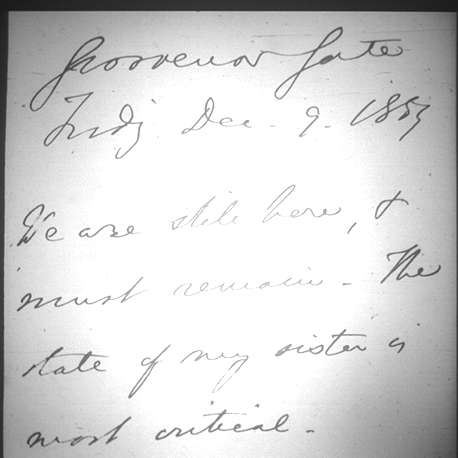 Grosvenor Gate
Dec. 9. 1859
We are still here, &
must remain - The
state of my sister is
most critical -